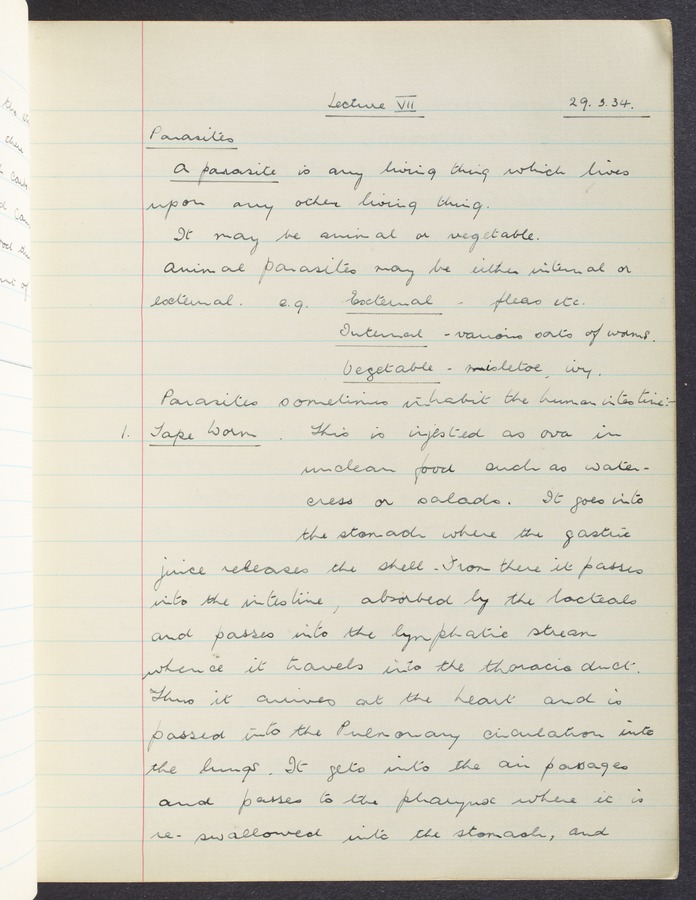 Lecture VII 29.3.34.
Parasites
A parasite is any living thing which lives
upon any other living thing.
It may be animal or vegetable.
Animal parasites may be either internal or
external. e.g. External - fleas etc.
Internal - various sorts of worms.
Vegetable - misletoe, ivy.
Parasites sometimes inhabit the human intestine:-
1. Tape Worm. This is injested as ova in
unclean food such as water-
cress or salads. It goes into
the stomach where the gastric
juice releases the shell. From there it passes
into the intestine, absorbed by the lacteals
and passes into the lymphatic stream
whence it travels into the thoracic duct.
Thus it arrives at the heart and is
passed into the Pulmonary circulation into
the lungs. It gets into the air passages
and passes to the pharynx where it is
re-swallowed into the stomach, and